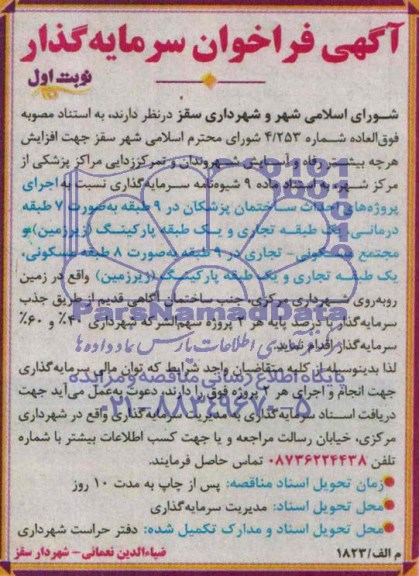 آگهی فراخوان سرمایه‌گذار
نوبت اول
شورای اسلامی شهر و شهرداری سقز درنظر دارند، به استناد مصوبه
فوق‌العاده شماره ۴/۲۵۳ شورای محترم اسلامی شهر سقز جهت افزایش
هرچه بیشتر رفاه و آسایش شهروندان و تمرکززدایی مراکز پزشکی از
مرکز شهر، به استناد ماده ۹ شیوه‌نامه سرمایه‌گذاری نسبت به اجرای
پروژه‌های احداث ساختمان پزشکان در ۹ طبقه به‌صورت ۷ طبقه
درمانی، یک طبقه تجاری و یک طبقه پارکینگ (زیرزمین) و
مجتمع مسکونی- تجاری در ۹ طبقه به‌صورت ۸ طبقه مسکونی،
یک طبقه تجاری و یک طبقه پارکینگ (زیرزمین) واقع در زمین
روبه‌روی شهرداری مرکزی، جنب ساختمان آگاهی قدیم از طریق جذب
سرمایه‌گذار با درصد پایه هر ۲ پروژه سهم‌الشرکه شهرداری ۴۰٪ و ۶۰٪
سرمایه‌گذار اقدام نماید.
لذا بدینوسیله از کلیه متقاضیان واجد شرایط که توان مالی سرمایه‌گذاری
جهت انجام و اجرای هر ۲ پروژه فوق را دارند دعوت به‌عمل می‌آید جهت
دریافت اسناد سرمایه‌گذاری به مدیریت سرمایه‌گذاری واقع در شهرداری
مرکزی، خیابان رسالت مراجعه و یا جهت کسب اطلاعات بیشتر با شماره
تلفن ۰۸۷۳۶۲۲۴۴۳۸ تماس حاصل فرمایند.
زمان تحویل اسناد مناقصه: پس از چاپ به مدت ۱۰ روز
محل تحویل اسناد: مدیریت سرمایه‌گذاری
محل تحویل اسناد و مدارک تکمیل شده: دفتر حراست شهرداری
م الف/۱۸۲۳ ضیاءالدین نعمانی- شهردار سقز
ParsNamadData
پایگاه اطلاع رسانی مناقصه و مزایده